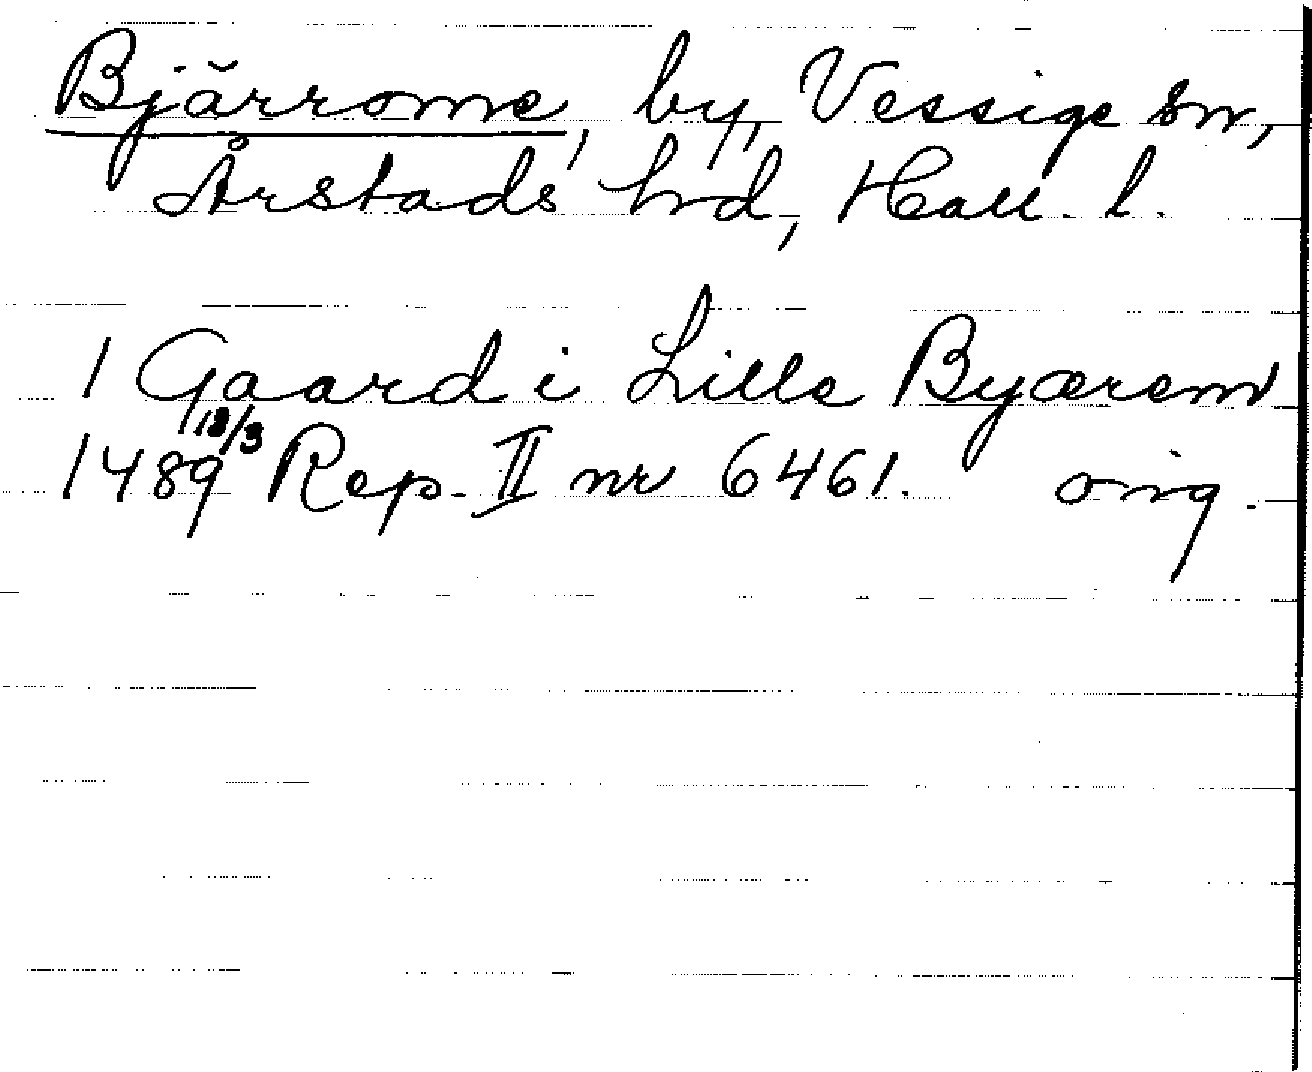 Bjärrome, by, Vessige sn,
Årstads hd, Hall. l.
1 Gaard i Lille Byærem
1489 13/3 Rep. II nr 6461. orig.